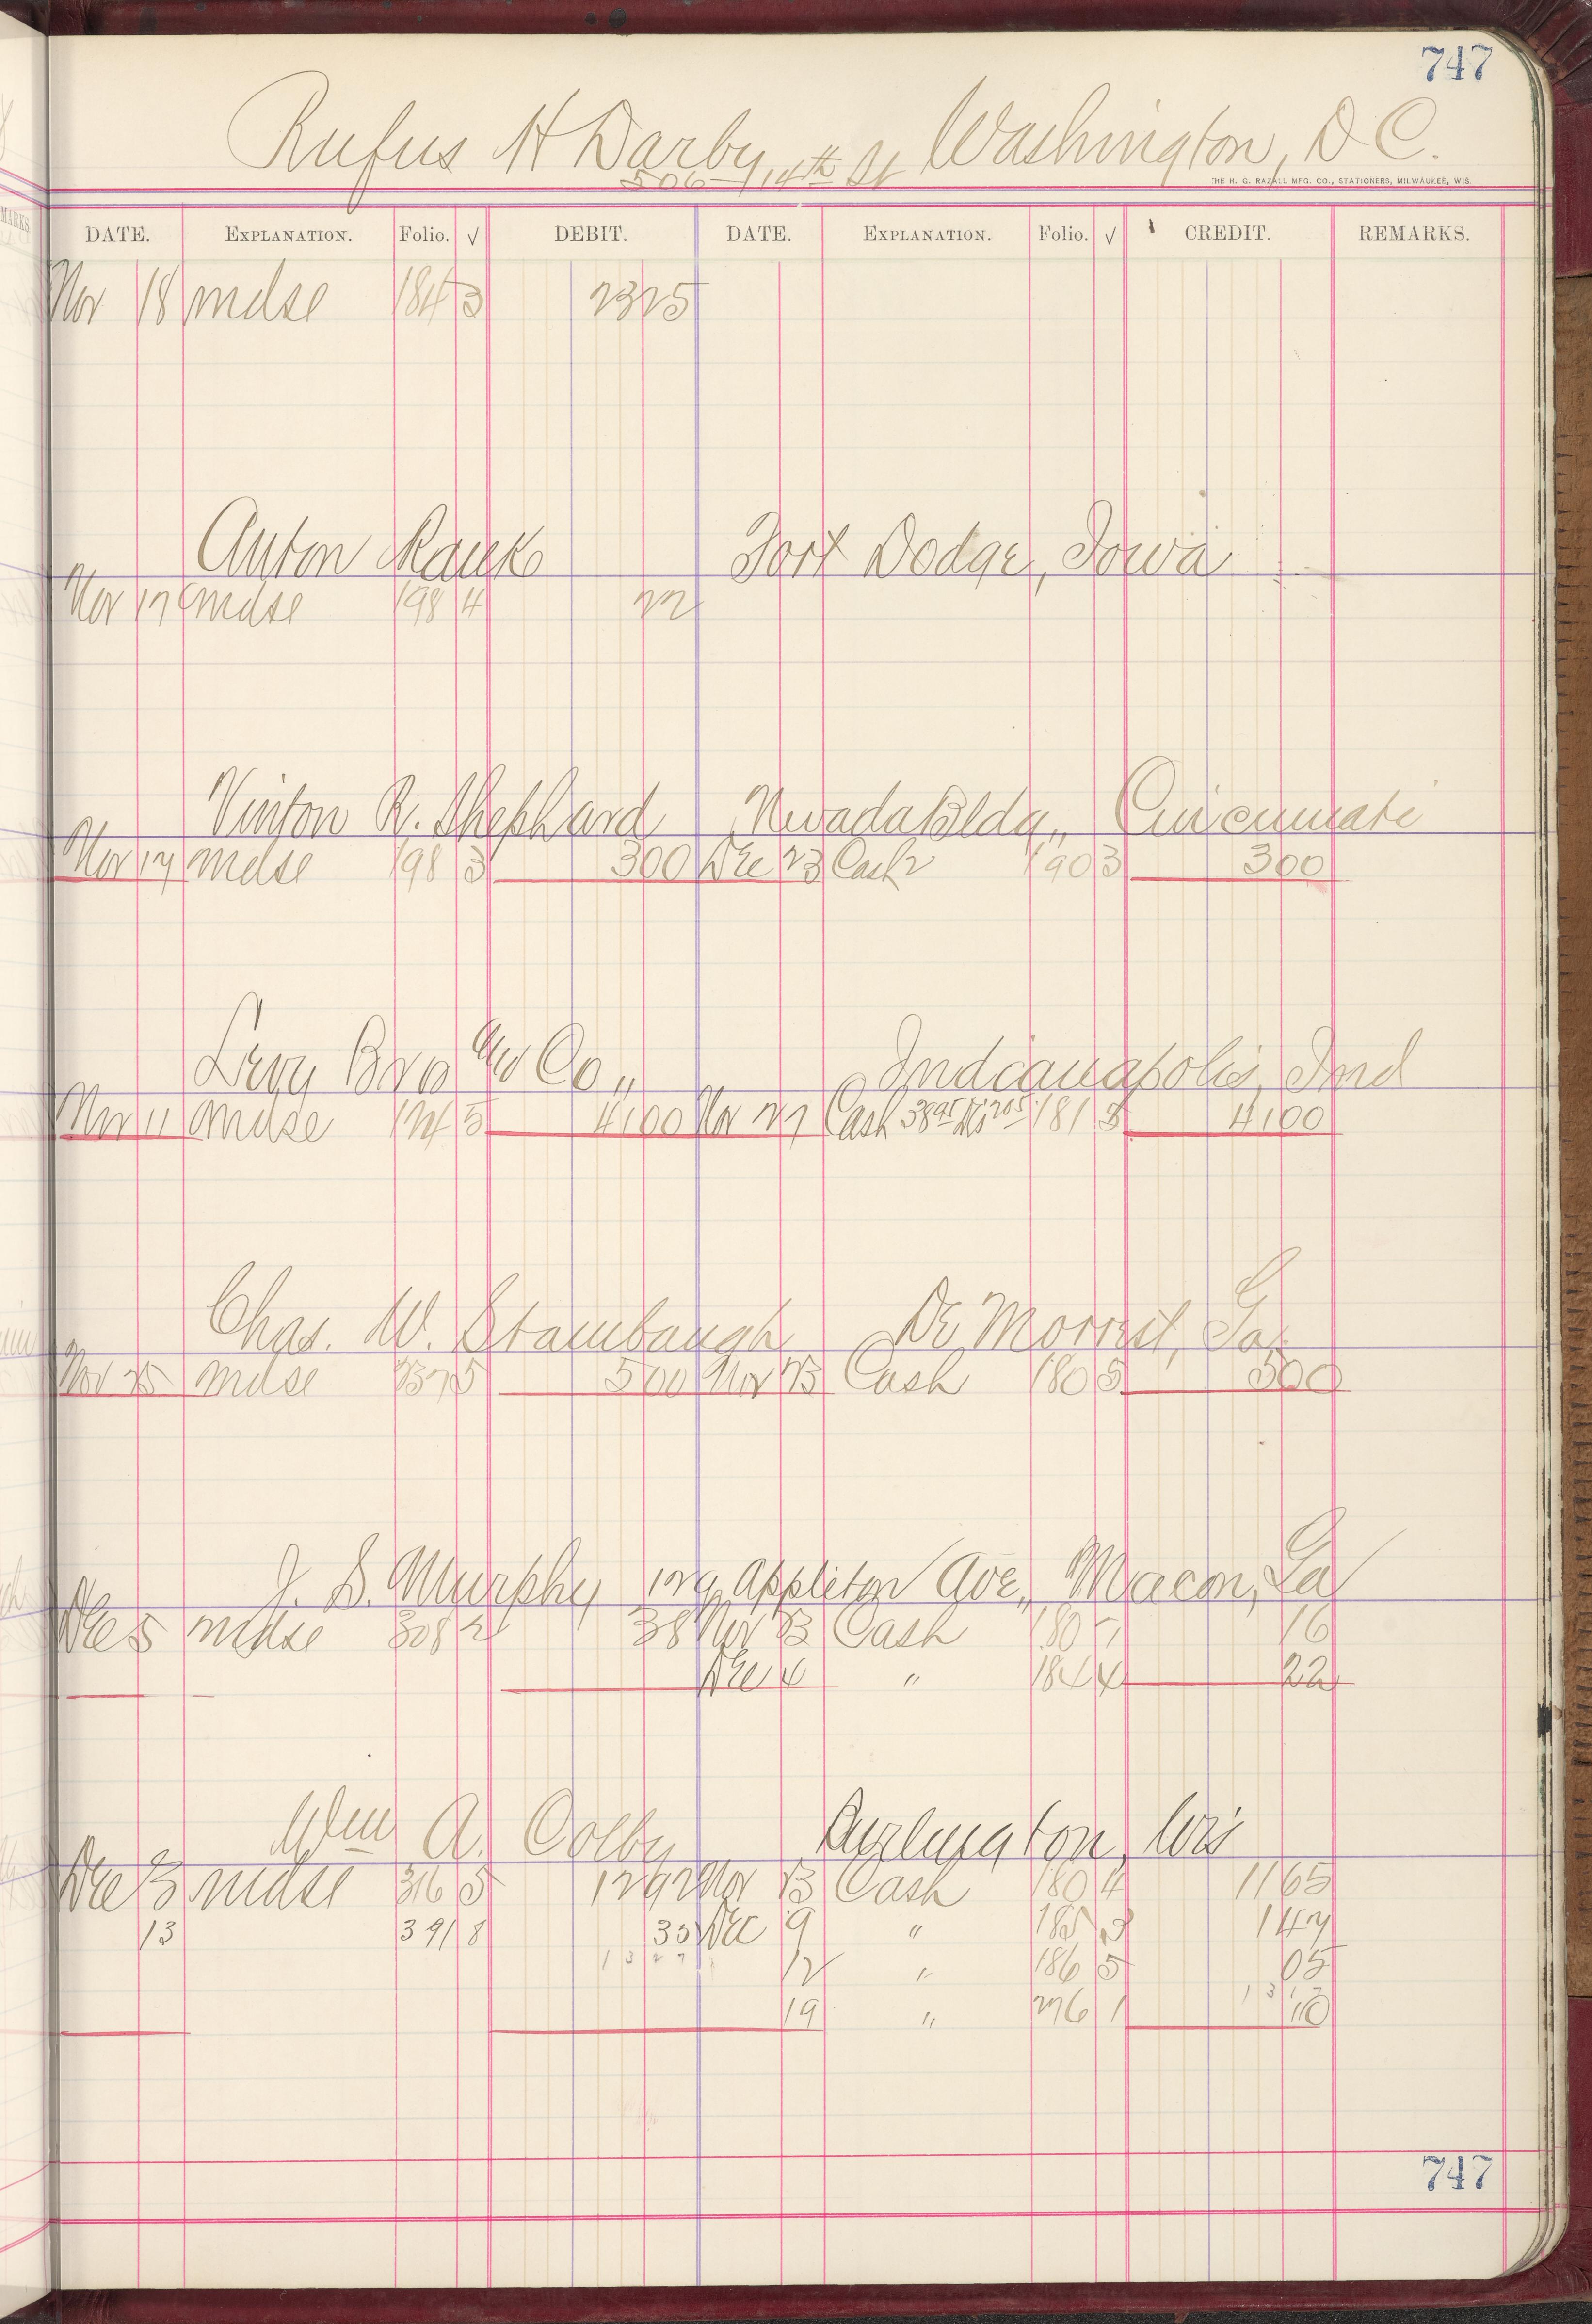 747
Rufus H Darby 506-14th St Washington, D C.
THE H. G. RAZALL MFG. CO., STATIONERS, MILWAUKEE, WIS.
DATE. EXPLANATION. Folio. √ DEBIT. DATE. EXPLANATION. Folio. √ CREDIT. REMARKS.
Nov 18 mdse 184 3 23 25
Anton Fort Dodge, Iowa
Nov 17 mdse 198 4 22
Vinton R. Shephard Nevada Bldg,, Cincinnati
Nov 17 mdse 198 3 3 00 Dec 23 Cash 190 3 3 00
Levy Bro and Co,, Indianapolis, Ind
Nov 11 mdse 124 5 41 00 Nov 27 Cash 38 95 Dis 2 05 181 3 41 00
Chas. W. Stambaugh De Morrest, Ga,
Nov 25 mdse 237 5 5 00 Nov 23 Cash 180 5 5 00
J. S. Murphy 129 Appleton Ave,, Macon, Ga
Dec 5 mdse 308 2 38 Nov 23 Cash 180 7 16
Dec 4 " 184 4 22
Wm A. Colby Burlington, Wis
Dec 3 mdse 316 5 12 92 Nov 23 Cash 180 4 11 65
13 391 8 35 Dec 9 " 185 3 1 47
13 27 12 " 186 5 05
19 " 276 1 10
747